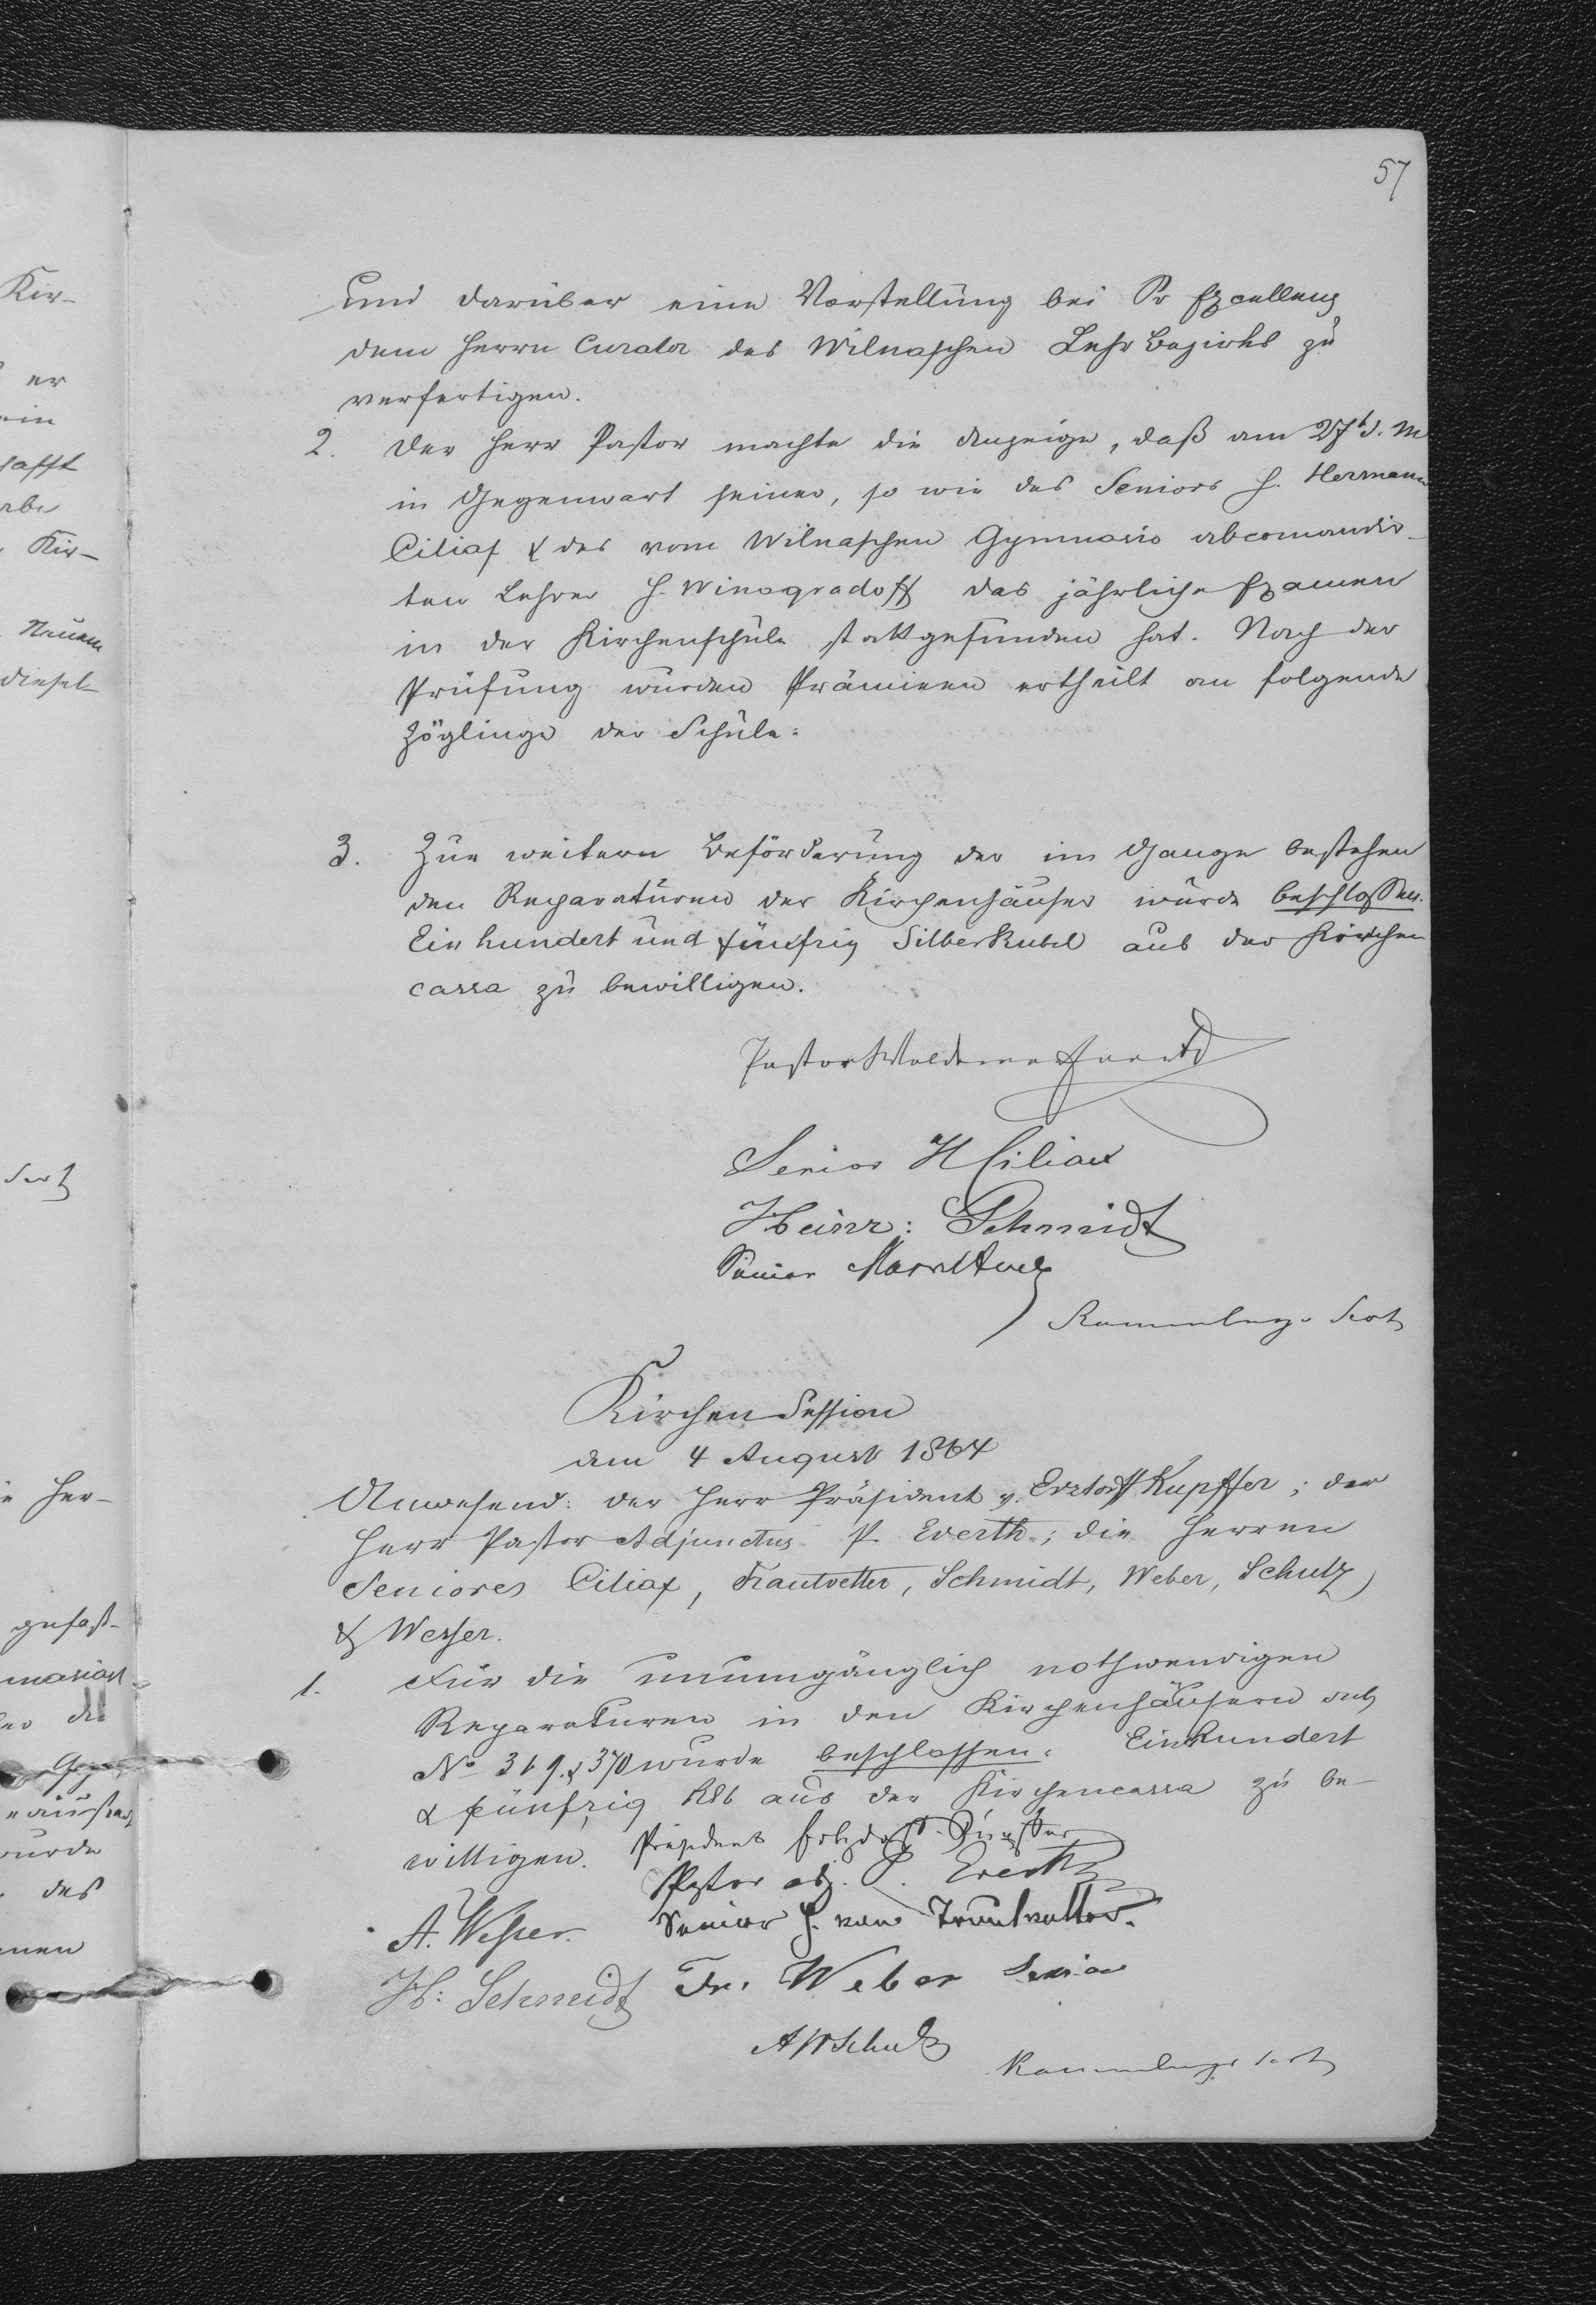 57
und darüber eine Vorstellung bei Sr Excellenz
dem Herrn Curator des Wilnaschen Lehr Bezirks zu
verfertigen.
2. Der Herr Pastor machte die Anzeige, daß am 27t d. M
in Gegenwart seiner, so wie des Seniors H. Herrmann
Ciliax & des vom Wilnaschen Gymnasio abcomandir-
ten Lehrer H. Winogradoff das jährliche Examen
in der Kirchenschule stattgefunden hat. Nach der
Prüfung wurden Prämien ertheilt an folgende
Zöglinge der Schule:
3. Zur weitern Beförderung der im Gange bestehen
den Reparaturen der Kirchenhäuser wurde beschlossen.
Ein hundert und fünfzig Silber Rubel aus der Kirchen
cassa zu bewilligen.
Pastor Woldemar
Senior H Ciliax
Heinr: Schmidt
Senior
Secrt
Kirchen Session
am 4 August 1864
Anwesend: der Herr Präsident v. Erztorff Kupffer; der
Herr Pastor Adjunctus P. Everth; die Herren
Seniores Ciliax, Trautvetter, Schmidt, Weber, Schultz
& Wesser.
1. Für die unumgänglich nothwendigen
Reparaturen in den Kirchenhäusern sub
No 369 & 370 wurde beschlossen: Einhundert
& fünfzig Rbl aus der Kirchencassa zu be-
willigen. Präsident
Pastor adj. P. Everth
A. Wesser. Senior H. von Trautvetter.
H: Schmidt Fr. Weber Senior
A W Schultz
Secrt